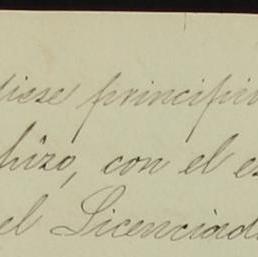 diese principio
hizo, con el es
el Licenciado